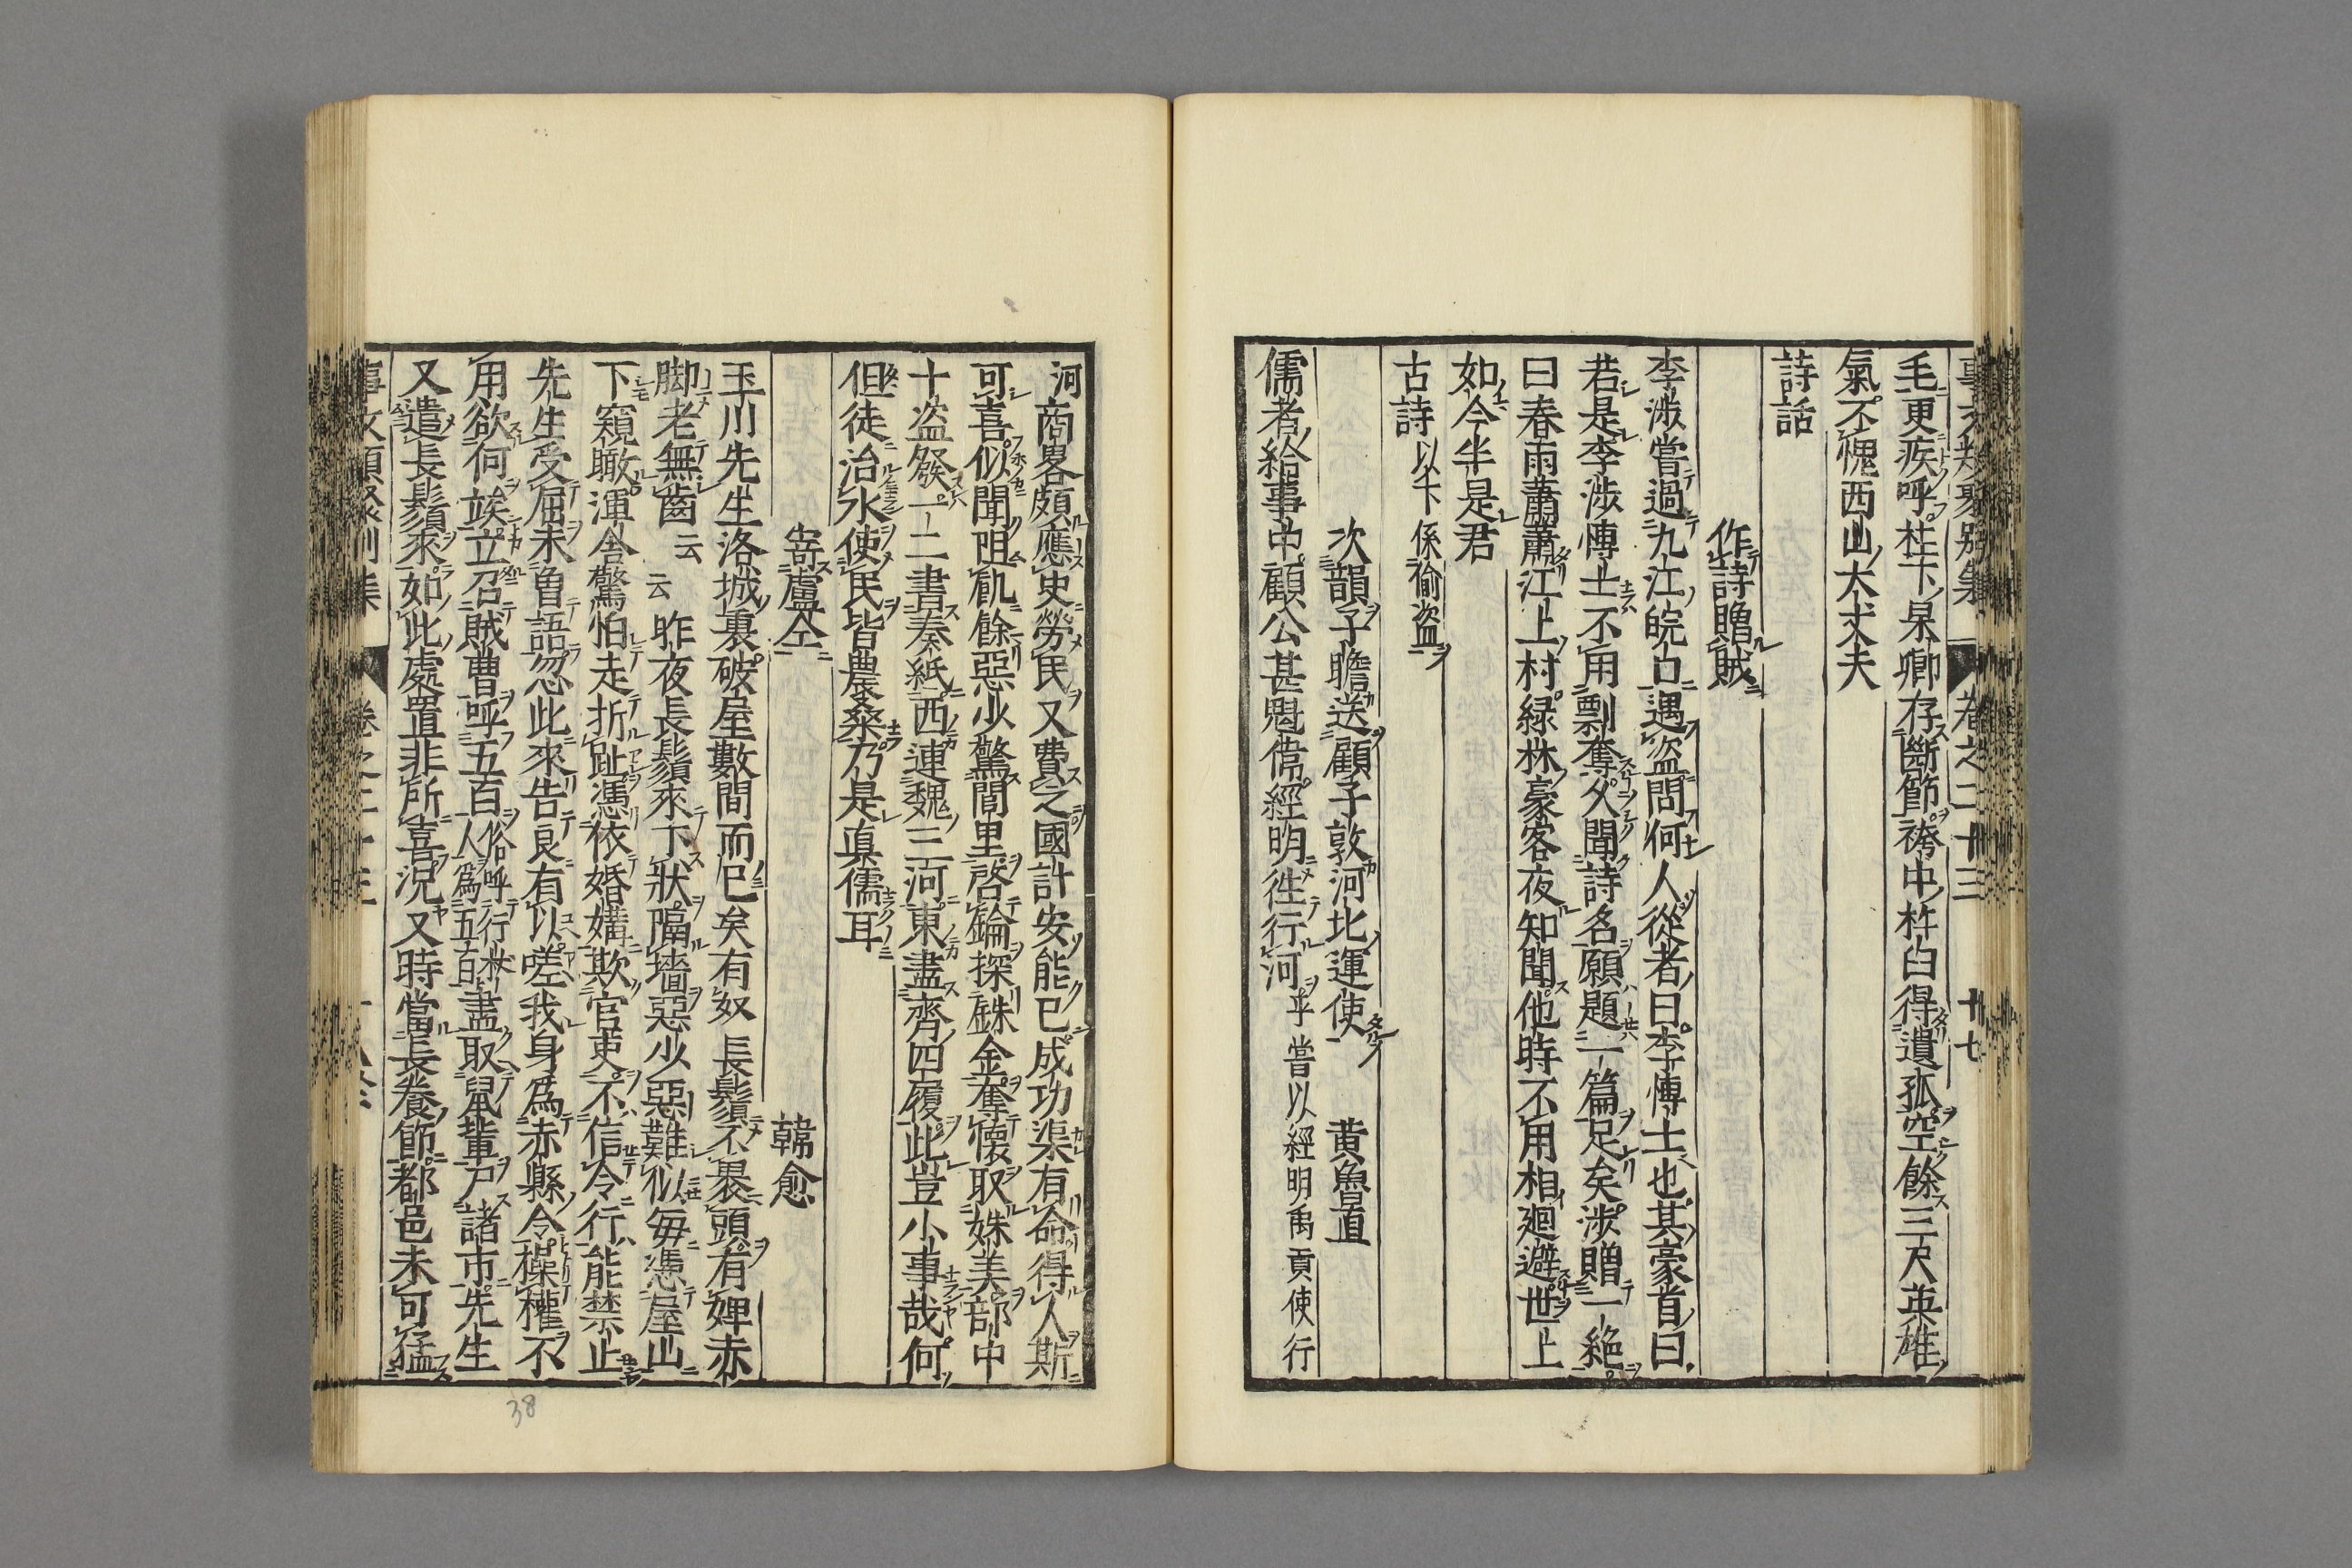 事文類聚別集 卷之二十三 十七
毛更疾呼杜下杲卿存斷節袴中杵臼得遺孤空餘三尺英雄
氣不愧西山大丈夫
詩話
作詩贈賊
李涉嘗過九江皖口遇盗問何人從者曰李慱士也其豪首曰
若是李涉慱士不用剽奪久聞詩名願題一篇足矣涉贈一絶
曰春雨蕭蕭江上村緑林豪客夜知聞他時不用相廻避世上
如今半是君
古詩 以下係偷盗
次韻子瞻送顧子敦河北運使 黄魯直
儒者給事中顧公甚魁偉經明徃行河 乎嘗以經明禹貢使行
河 商畧頗應史勞民又費之國計安能已成功渠有命得人斯
可喜似聞阻飢餘惡少驚閭里啓鑰探銖金奪懐取姝美部中
十盗發一二書奏紙西連魏三河東盡齊四履此豈小事哉何
但徒治水使民皆農桑乃是真儒耳
寄盧仝 韓愈
玉川先生洛城裏破屋數間而已矣有奴長鬚不褁頭有婢赤
脚老無齒云云 昨夜長鬚來下狀隔墻惡少惡難似毎憑屋山
下窺瞰渾舎驚怕走折趾憑依婚媾欺官吏不信令行能禁止
先生受屈未曽語忽此來告良有以嗟我身爲赤縣令操權不
用欲何竢立召賊曹呼五百 俗呼行杖人爲五百 盡取鼠輩尸諸市先生
又遣長鬚來如此處置非所喜况又時當長養節都邑未可猛
38